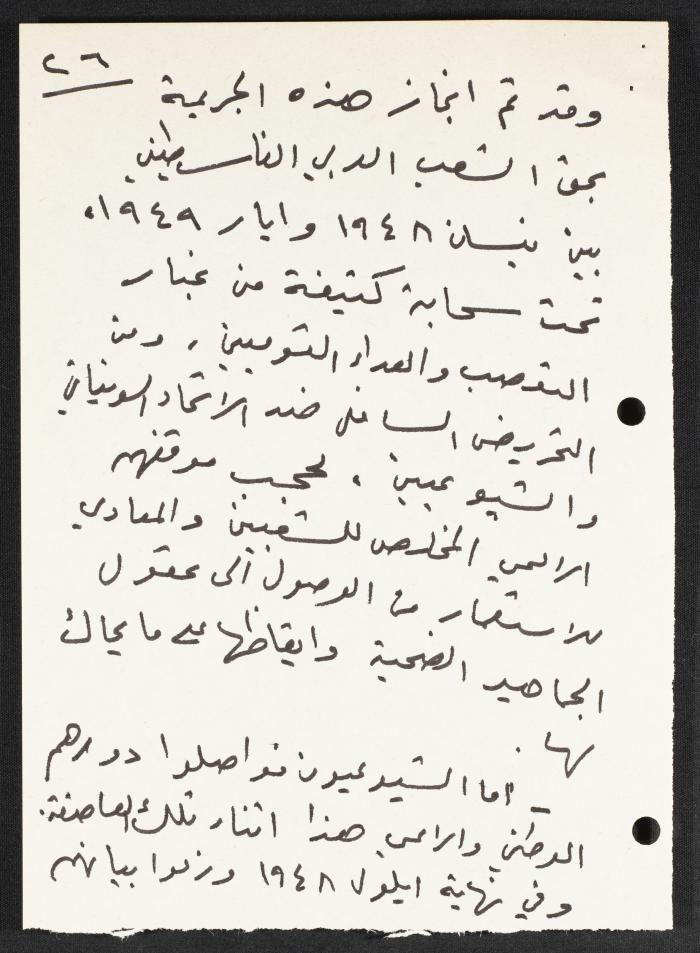 ٢٦
وقد تم انجاز هذه الجريمة
بحق الشعب العربي الفلسطيني
بين نيسان ١٩٤٨ وايار ١٩٤٩،
تحت سحابة كثيفة من غبار
التعصب والعداء القوميين، ومن
التحريض السافل ضد الاتحاد السوفياتي
والشيوعيين، لحجب موقفهم
الاممي المخلص للشعبين والمعادي
للاستعمار من الوصول الى عقول
الجماهير الضحية وايقاظها على ما يحاك
لها.
– اما الشيوعيون فواصلوا دورهم
الوطني والاممي هذا اثناء تلك العاصفة.
وفي نهاية ايلول ١٩٤٨ وزعوا بيانهم